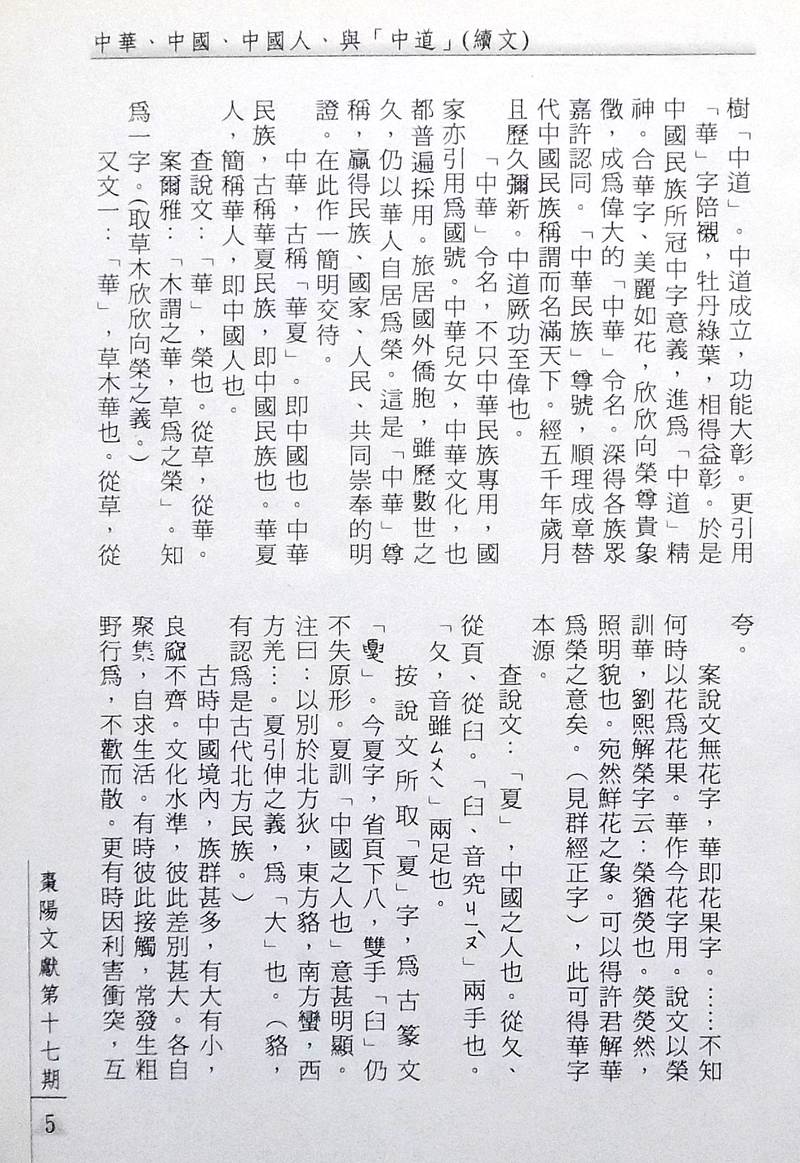 中華、中國、中國人、與「中道」(續文)
樹「中道」。中道成立，功能大彰。更引用
「華」字陪襯，牡丹綠葉，相得益彰。於是
中國民族所冠中字意義，進爲「中道」精
神。合華字、美麗如花，欣欣向榮尊貴象
徵，成爲偉大的「中華」令名。深得各族眾
嘉許認同。「中華民族」尊號，順理成章替
代中國民族稱謂而名滿天下。經五千年歲月
且歷久彌新。中道厥功至偉也。
「中華」令名，不只中華民族專用，國
家亦引用爲國號。中華兒女，中華文化，也
都普遍採用。旅居國外僑胞，雖歷數世之
久，仍以華人自居爲榮。這是「中華」尊
稱，贏得民族、國家、人民、共同崇奉的明
證。在此作一簡明交待。
中華，古稱「華夏」。即中國也。中華
民族，古稱華夏民族，即中國民族也。華夏
人，簡稱華人，即中國人也。
查說文：「華」，榮也。從草，從華。
案爾雅：「木謂之華，草爲之榮」。知
爲一字。(取草木欣欣向榮之義。)
又文一：「華」，草木華也。從草，從
夸。
案說文無花字，華即花果字。……不知
何時以花爲花果。華作今花字用。說文以榮
訓華，劉熙解榮字云：榮猶熒也。熒熒然，
照明貌也。宛然鮮花之象。可以得許君解華
爲榮之意矣。（見群經正字），此可得華字
本源。
查說文：「夏」，中國之人也。從夂、
從頁、從臼。「臼、音究ㄐㄧㄡˋ」兩手也。
「夂，音雖ㄙㄨㄟ」兩足也。
按說文所取「夏」字，爲古篆文
「」。今夏字，省頁下八，雙手「臼」仍
不失原形。夏訓「中國之人也」意甚明顯。
注曰：以別於北方狄，東方貉，南方蠻，西
方羌…。夏引伸之義，爲「大」也。（貉，
有認爲是古代北方民族。）
古時中國境內，族群甚多，有大有小，
良窳不齊。文化水準，彼此差別甚大。各自
聚集，自求生活。有時彼此接觸，常發生粗
野行爲，不歡而散。更有時因利害衝突，互
棗陽文獻第十七期
5